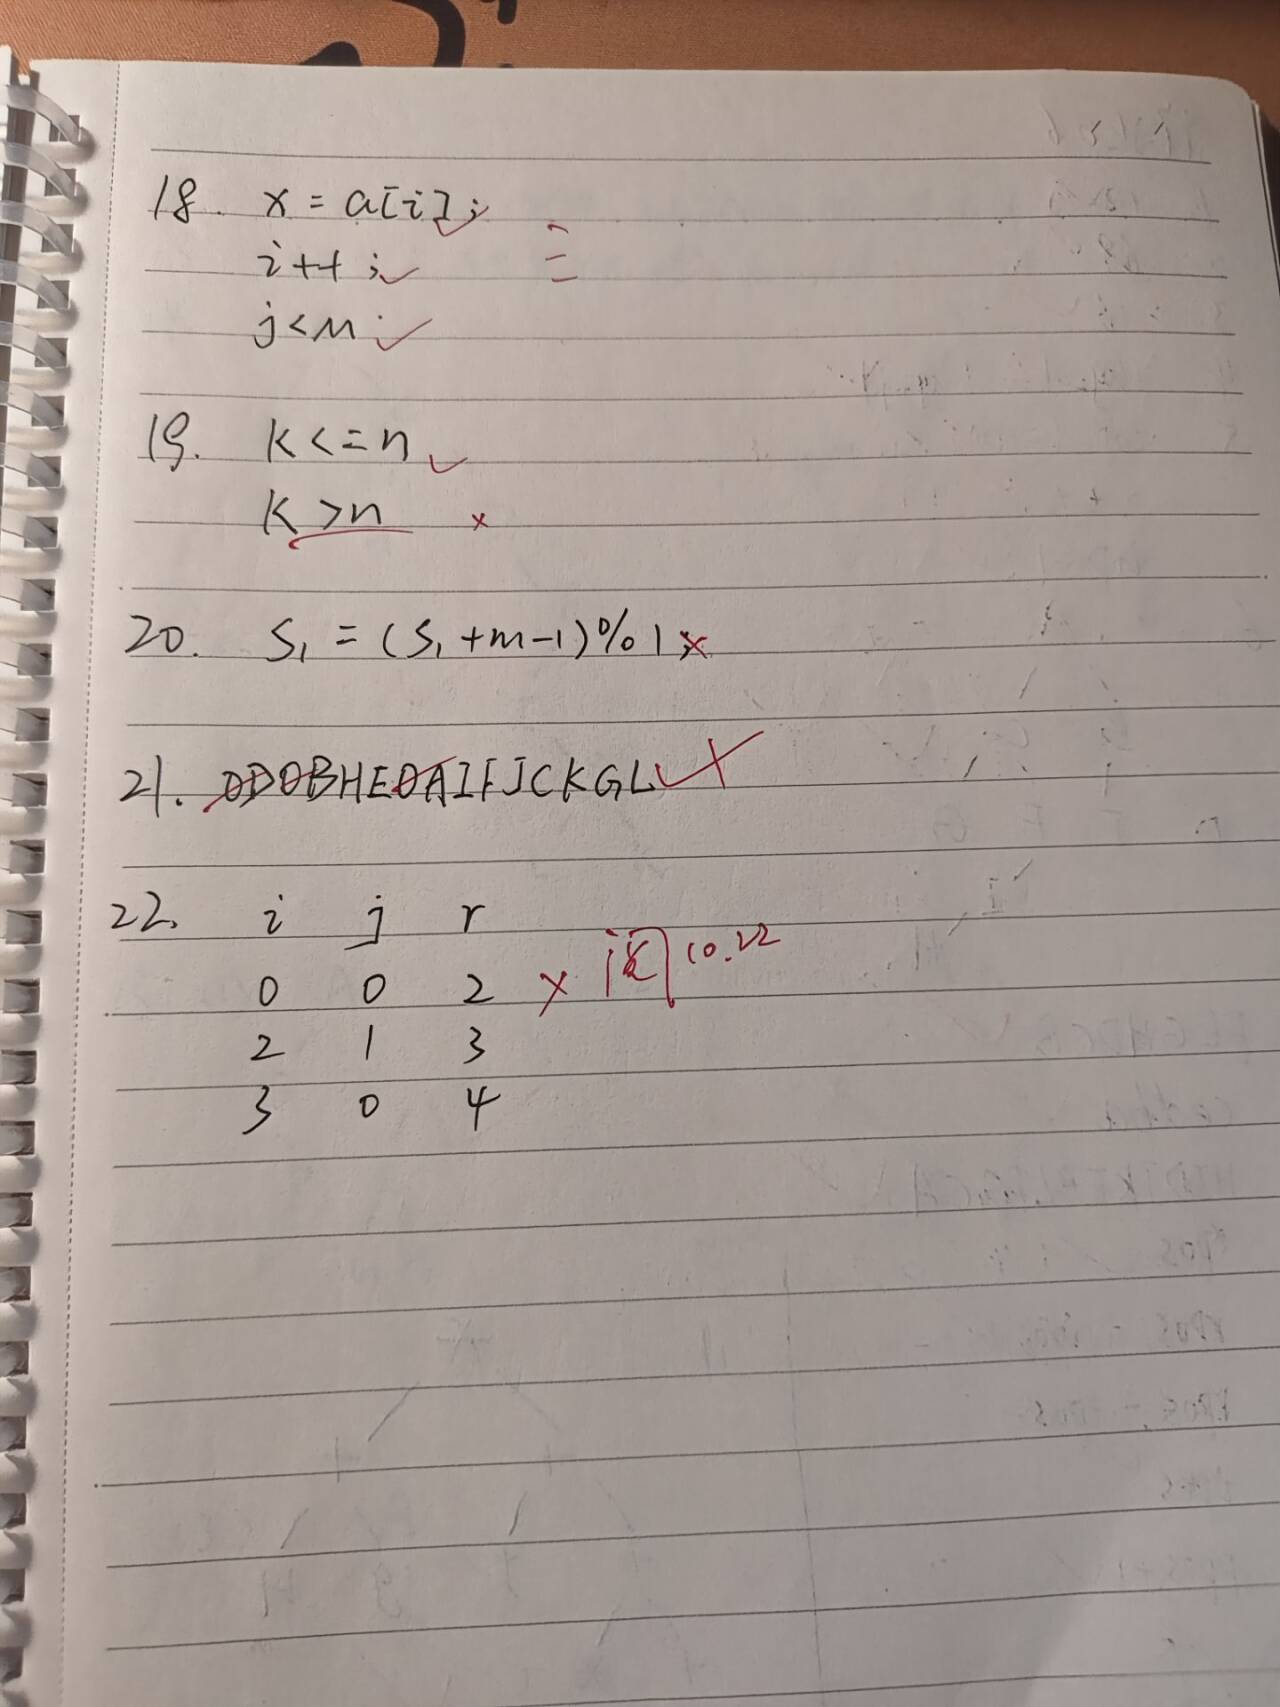 18. x = a[i];
i++;
j<m;
19. k<=n
k>n
20. S₁ = (S₁+m-1)%1
21. ODOBHEOAIFJCKGL
22. i j r
0 0 2 10.22
2 1 3
3 0 4